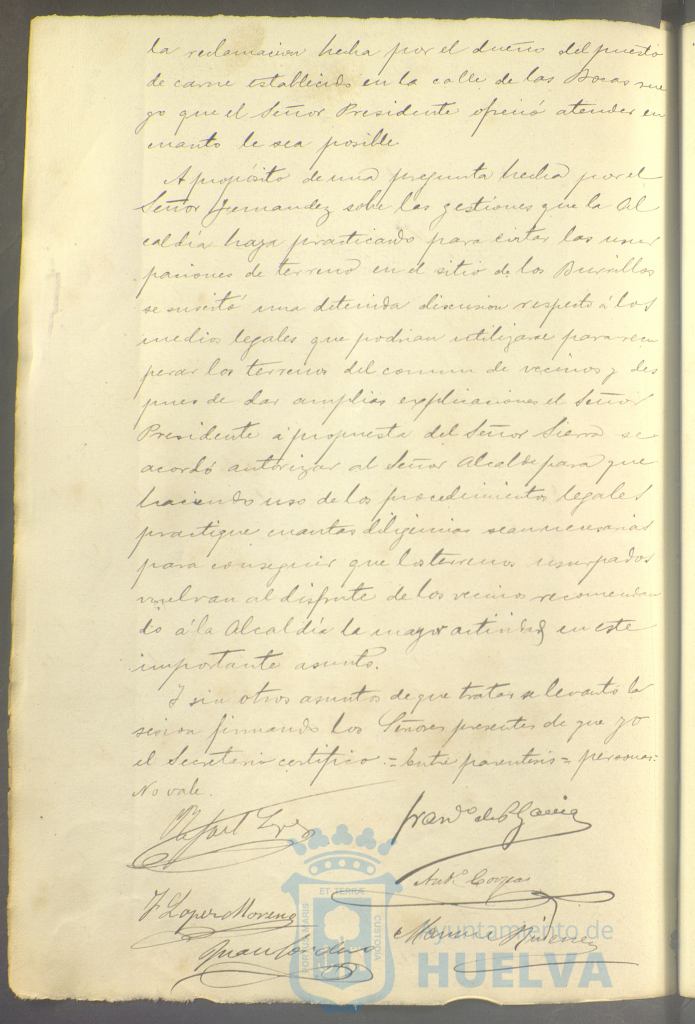 la reclamacion hecha por el dueño del puesto
de carne establecido en la calle de las Bocas rue
go que el Señor Presidente ofreció atender en
cuanto le sea posible
A propósito de una pregunta hecha por el
Señor Fernandez sobre las gestiones que la Al
caldía haya practicado para evitar las usur
paciones de terreno en el sitio de los Burrillos
se suscitó una detenida discusion respecto á los
medios legales que podrian utilizarse para recu
perar los terrenos del comun de vecinos y des
pues de dar amplias explicaciones el Señor
Presidente á propuesta del Señor Sierra se
acordó autorizar al Señor Alcalde para que
haciendo uso de los procedimientos legales
practique cuantas diligencias sean necesarias
para conseguir que los terrenos usurpados
vuelvan al disfrute de los vecinos recomendan
do á la Alcaldía la mayor actividad en este
importante asunto.
Y sin otros asuntos de que tratar se levantó la
sesion firmando los Señores presentes de que yo
el Secretario certifico. = Entre parentesis = personas =
No vale.
Rafael
Fran.co de P. García
And.s
F Lopez Moreno
Juan Cordero
Manuel
PORTUS MARIS
ET TERRÆ
CUSTODIA
Ayuntamiento de
HUELVA